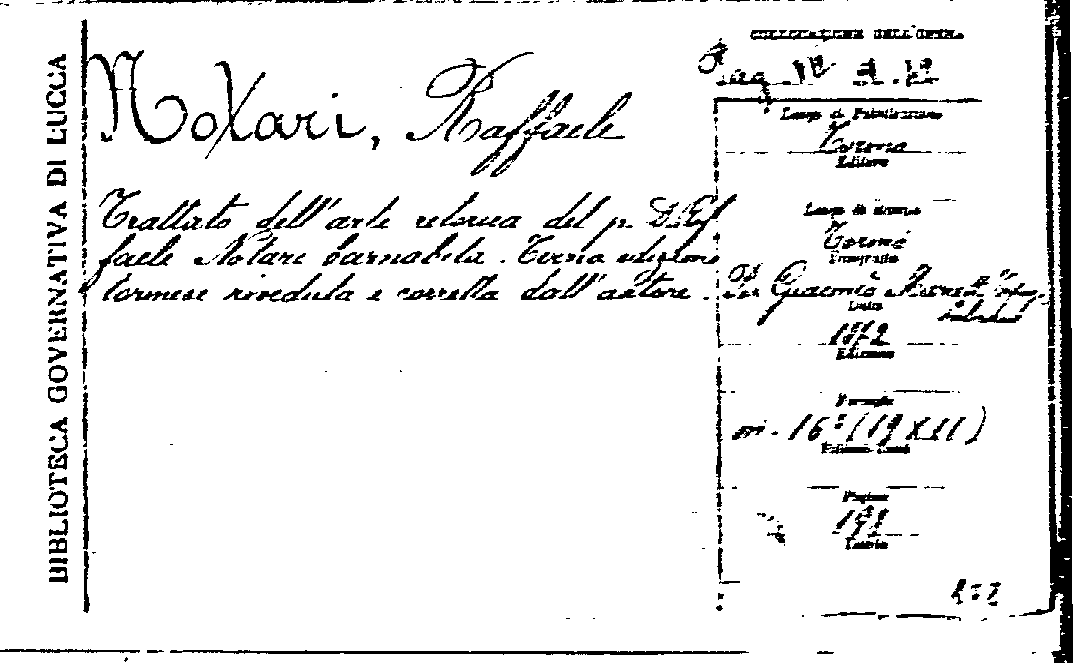 BIBLIOTECA GOVERNATIVA DI LUCCA
Notari, Raffaele
Trattato dell'arte retorica del p. D. Raf
faele Notari barnabita. Terza edizione
torinese riveduta e corretta dall'autore.
COLLOCAZIONE DELL'OPERA
Luogo di Pubblicazione
Torino
Editore
Luogo di stampa
Torino
Tipografo
Per Giacinto
Data
Edizione
Formato
in-16° (19X11)
Pagine